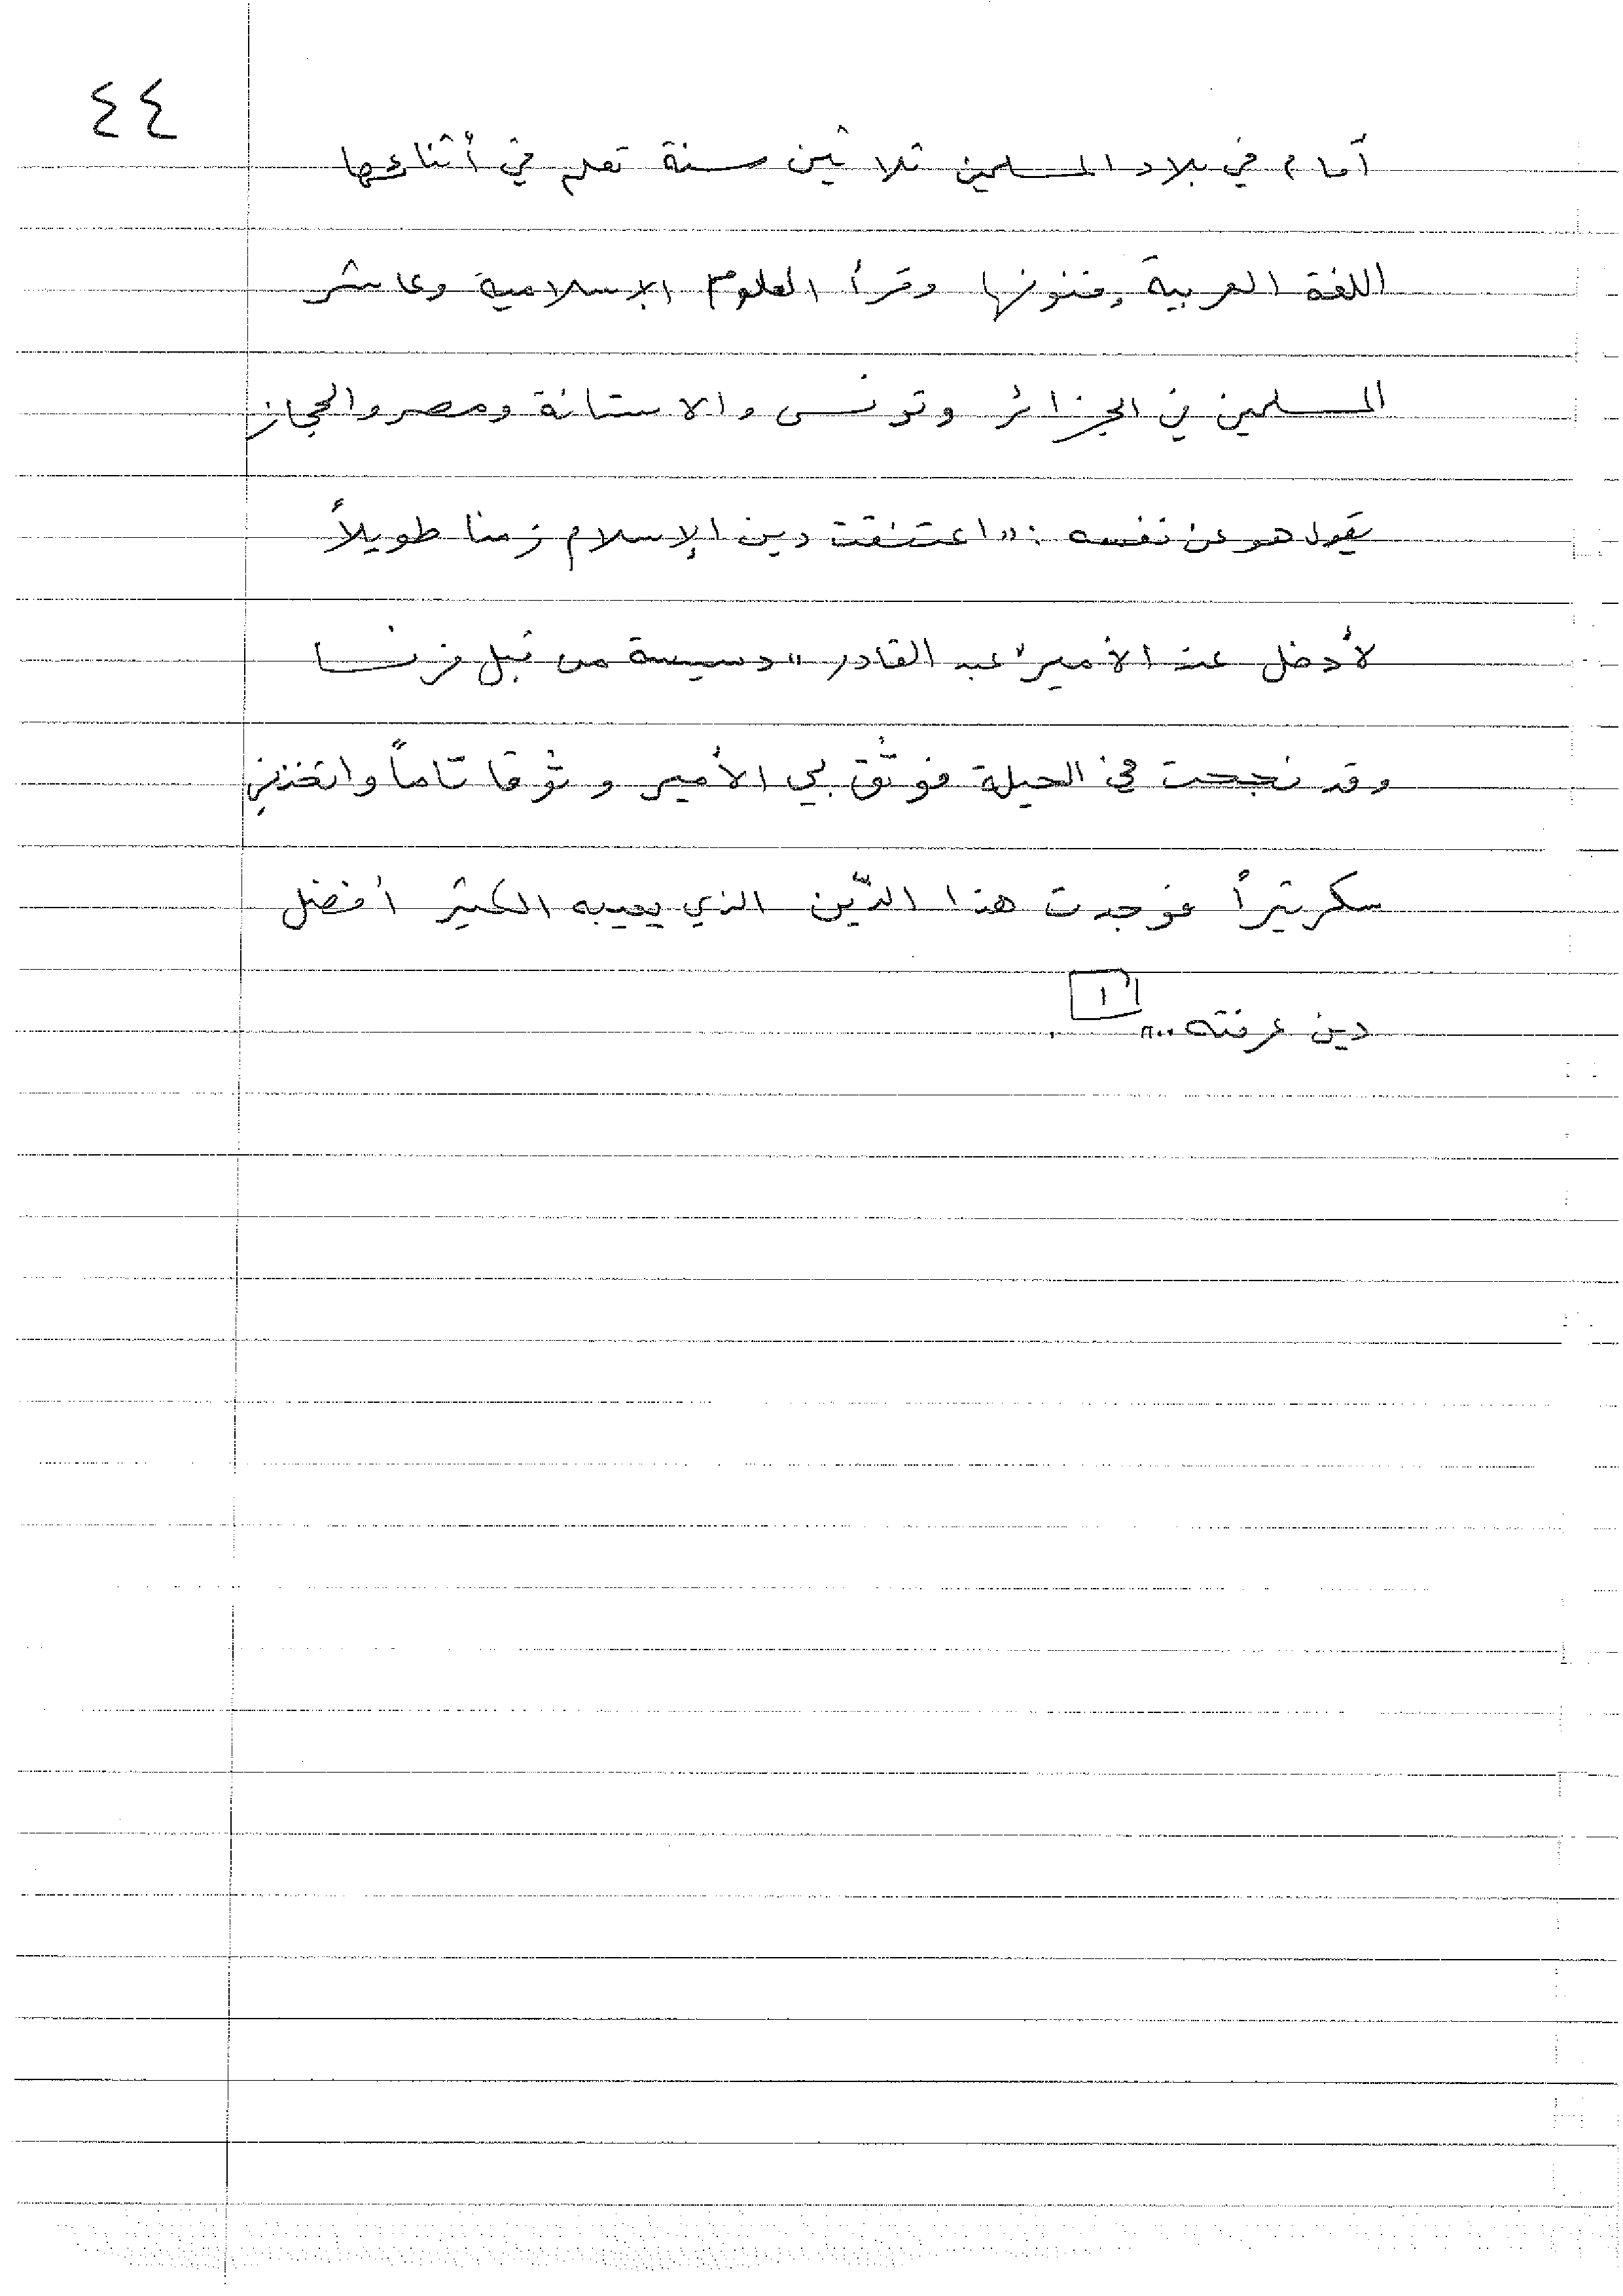 ٤٤
أقام في بلاد المسلمين ثلاثين سنة تعلم في أثنائها
اللغة العربية وفنونها وقرأ العلوم الإسلامية وعاشر
المسلمين في الجزائر وتونس والاستانة ومصر والحجاز
يقول هو عن نفسه : "اعتنقت دين الإسلام زمنا طويلاً
لأدخل عند الأمير عبد القادر "دسيسة من قبل فرنسا
وقد نجحت في الحيلة فوثق بي الأمير وثوقا تاماً واتخذني
سكرتيراً فوجدت هذا الدّين الذي يعيبه الكثير أفضل
دين عرفته .." [١] .